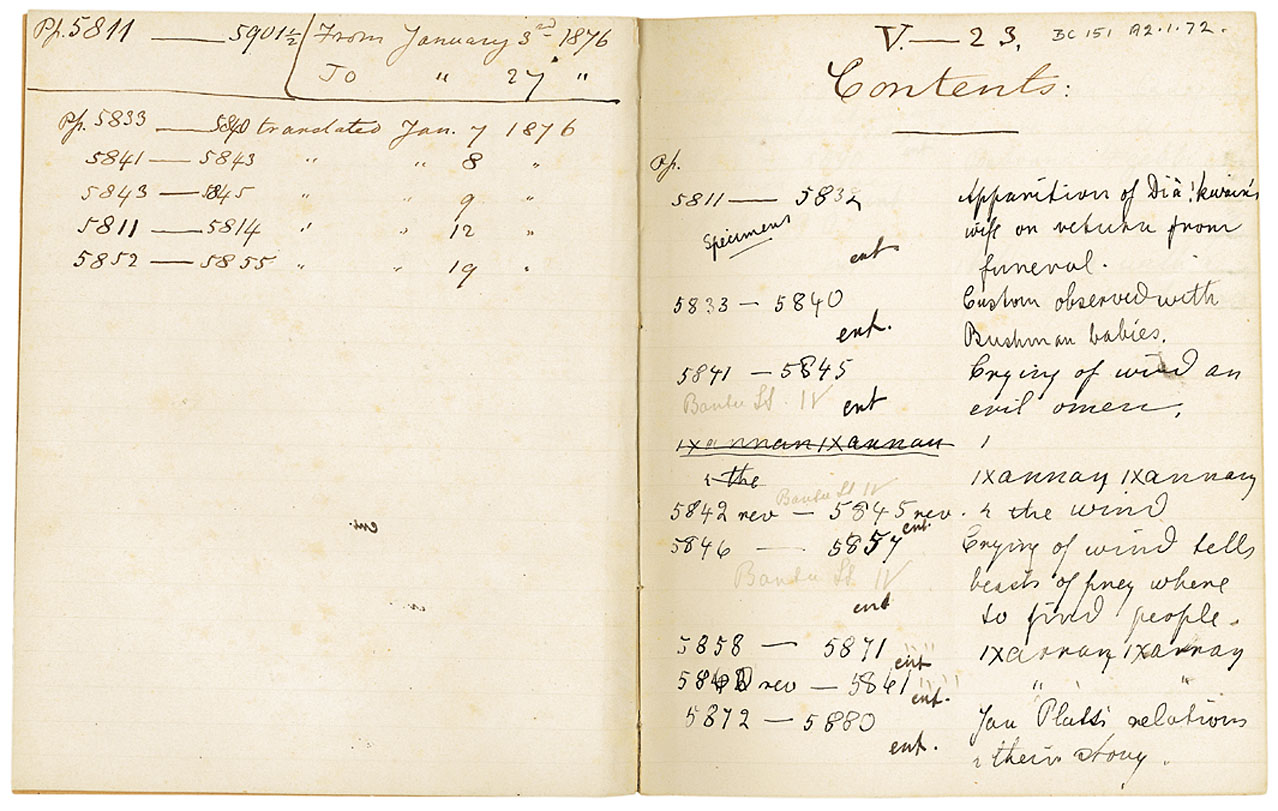 Pp. 5811 — 5901½ From January 3rd 1876
To " 27 "
Pp. 5833 — 5840 translated Jan. 7 1876
5841 — 5843 " " 8 "
5843 — 5845 " " 9 "
5811 — 5814 " " 12 "
5852 — 5855 " " 19 "
ent.
V.—23. BC 151 A2.1.72.
Contents:
Pp.
5811 — 5832 Apparition of Diä!kwain's
Specimens wife on return from
ent funeral.
5833 — 5840 Custom observed with
ent. Bushman babies.
5841 — 5845 Crying of wind an
Bantu St. IV ent evil omen.
ǀxannan ǀxannan
& the ǀxannaŋ ǀxannaŋ
Bantu St IV
5842 rev — 5845 rev. & the wind
ent.
5846 — 5857 Crying of wind tells
Bantu St. IV beasts of prey where
ent to find people.
5858 — 5871 ent ǀxannaŋ ǀxannaŋ
rev — 5861 ent. " "
5872 — 5880 Jan Platt's relations
ent. & their story.